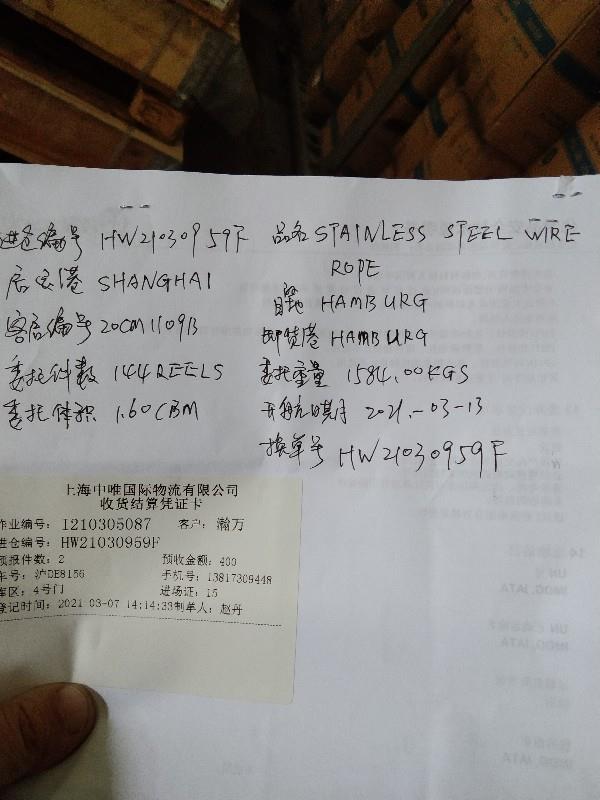 进仓编号 HW21030959F
启运港 SHANGHAI
客户编号 20CM1109B
委托件数 144REELS
委托体积 1.60CBM
品名 STAINLESS STEEL WIRE
ROPE
目的地 HAMBURG
卸货港 HAMBURG
委托重量 1584.00KGS
开航日期 2021.-03-13
换单号 HW21030959F
上海中唯国际物流有限公司
收货结算凭证卡
作业编号: I210305087 客户: 瀚万
进仓编号: HW21030959F
预报件数: 2 预收金额: 400
车号: 沪DE8156 手机号: 13817309448
库区: 4号门 进场证: 15
登记时间: 2021-03-07 14:14:33制单人: 赵丹